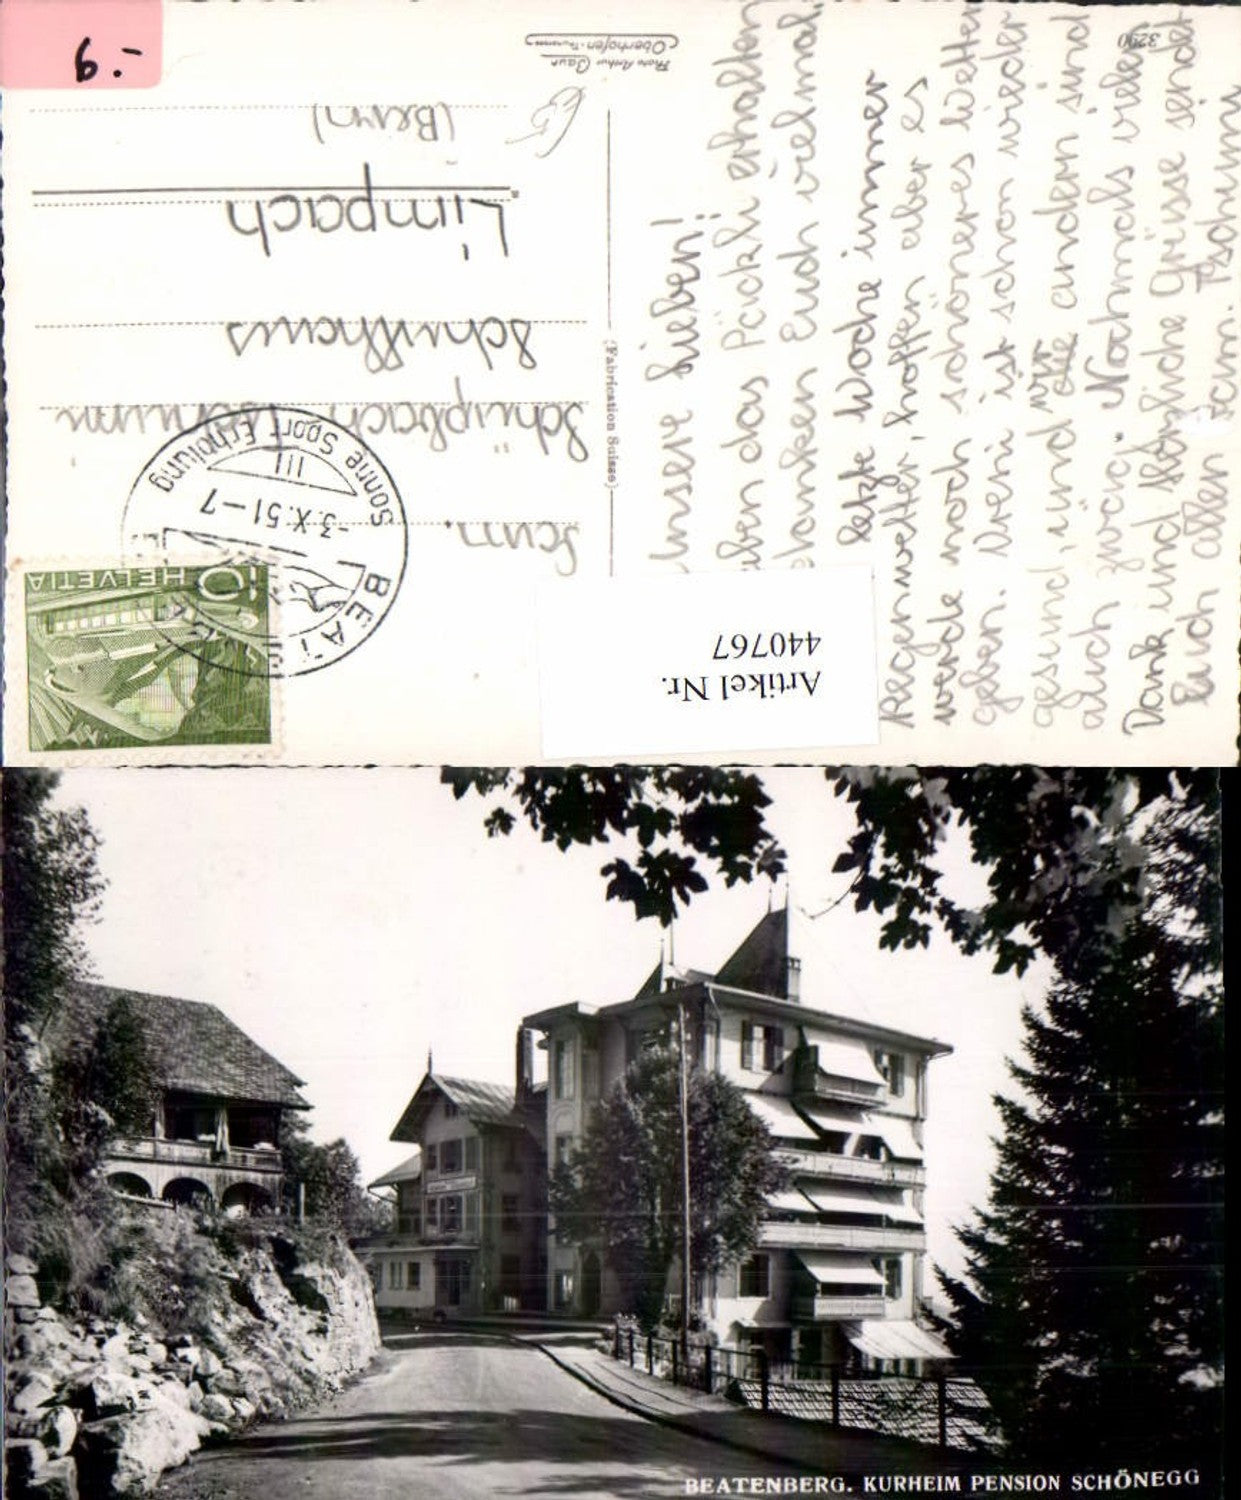 9.-
3290
Photo Arthur Baur
Oberhofen-Thunersee
(Fabrication Suisse)
Unsere Lieben!
haben das Päckli erhalten
danken Euch vielmal.
letzte Woche immer
Regenwetter, hoffen aber es
werde noch schöneres Wetter
geben. Vreni ist schon wieder
gesund, und wir andern sind
auch zwäg. Nochmals vielen
Dank und herzliche Grüsse sendet
Euch allen Fam. Tschumi
HELVETIA 10
BEAT
-3.X.51-7
III
Sonne Sport Erholung
Fam.
Schüpbach Tschumi
Schulhaus
Limpach
(Bern)
Artikel Nr.
440767
BEATENBERG. KURHEIM PENSION SCHÖNEGG